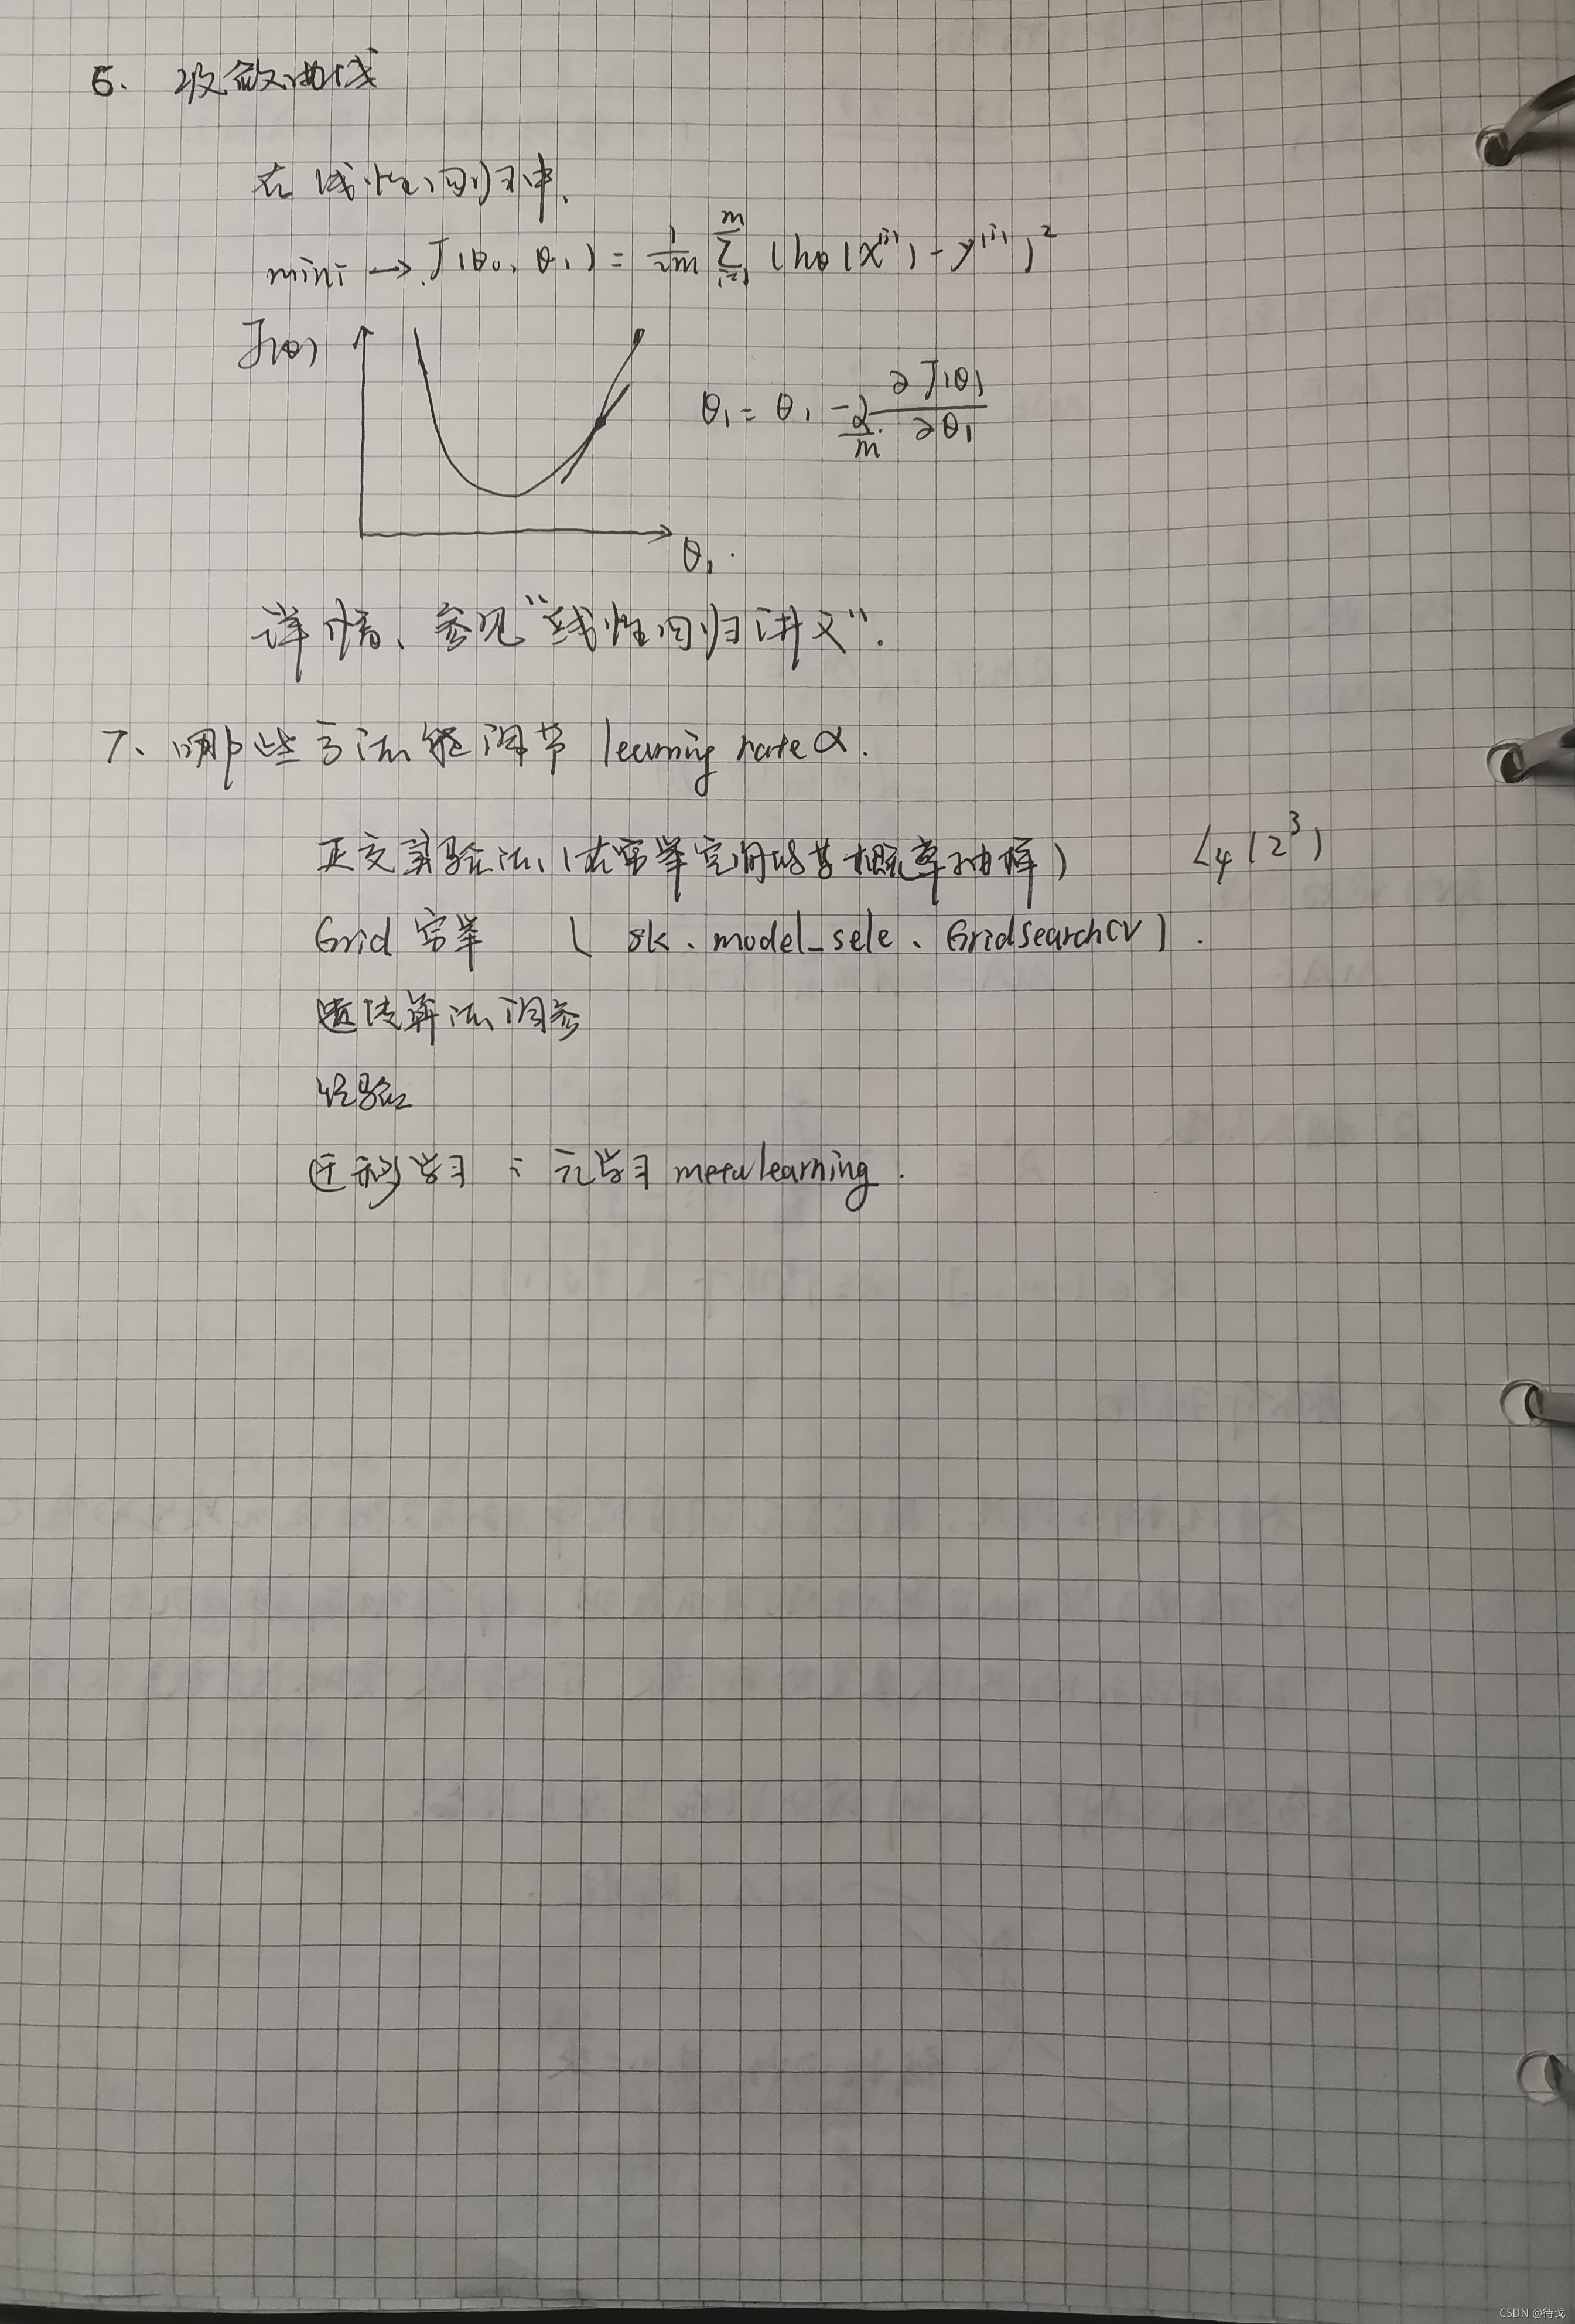 6. 收敛曲线
在线性回归中,
mini → J(θ₀, θ₁) = 1/2m Σᵢ₌₁ᵐ (hθ(x⁽ⁱ⁾) - y⁽ⁱ⁾)²
J(θ)
θ₁ = θ₁ - α/m · ∂J(θ)/∂θ₁
θ₁
详情、参见“线性回归讲义”.
7、哪些方法能调节 learning rate α.
正交实验法、(在穷举空间的等概率抽样) L₄(2³)
Grid 穷举 ( sk、model_sele、GridSearchCV ).
遗传算法调参
经验
迁移学习 : 元学习 meta learning.
CSDN @待戈